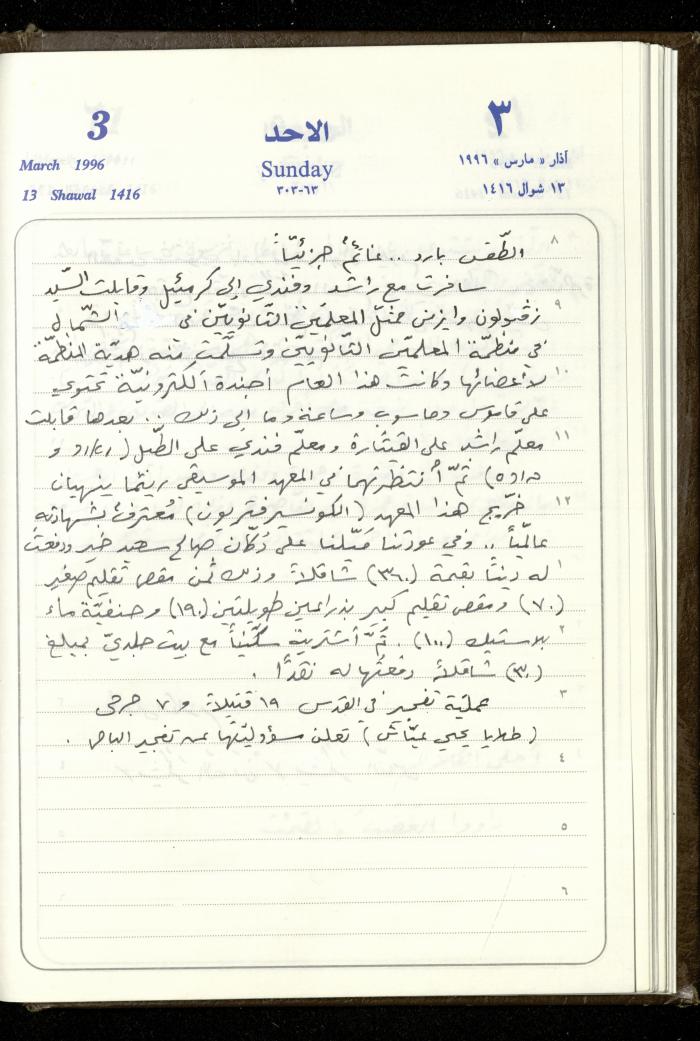 3
٣
الاحد
March 1996
Sunday
آذار « مارس » ١٩٩٦
13 Shawal 1416
٦٣-٣٠٣
١٣ شوال ١٤١٦
٨
الطّقس بارد .. غائمٌ جزئيّاً
سافرت مع راشد وفندي إلى كرميئيل وقابلت السّيد
٩
زڤولون وايزمن ممثّل المعلمّين الثّانويّين في الشّمال
في منظمّة المعلمّين الثّانويّين وتسلّمت منه هديّة المنظمّة
١٠
لأعضائها وكانت هذا العام أجندة ألكترونيّة تحتوي
على قاموس وحاسوب وساعة وما إلى ذلك .. بعدها قابلت
١١
معلّم راشد على القيثارة ومعلّم فندي على الطّبل
ثمّ أنتظرتهما في المعهد الموسيقي ريثما ينهيان
١٢
خرّيج هذا المعهد (الكونسيرفتريون) مُعترفٌ بشهادته
عالميّاً .. وفي عودتنا ميّلنا على دُكّان صالح سعيد خير ودفعت
١
له ديناً بقيمة (٣٦٠) شاقلاً وذلك ثمن مقص تقليم صغير
(٧٠) ومقص تقليم كبير بذراعين طويلتين (١٩٠) وحنفيّة ماء
٢
بلاستيك (١٠٠) . ثمَّ أشتريت سكّيناً مع بيت جلديّ بمبلغ
(٣٠) شاقلاً دفعتها له نقدًا .
٣
عمليّة تفجير في القدس ١٩ قتيلاً و ٧ جرحى
(خلايا يحيى عيّاش) تعلن مسؤوليّتها عن تفجير الباص .
٤
٥
٦